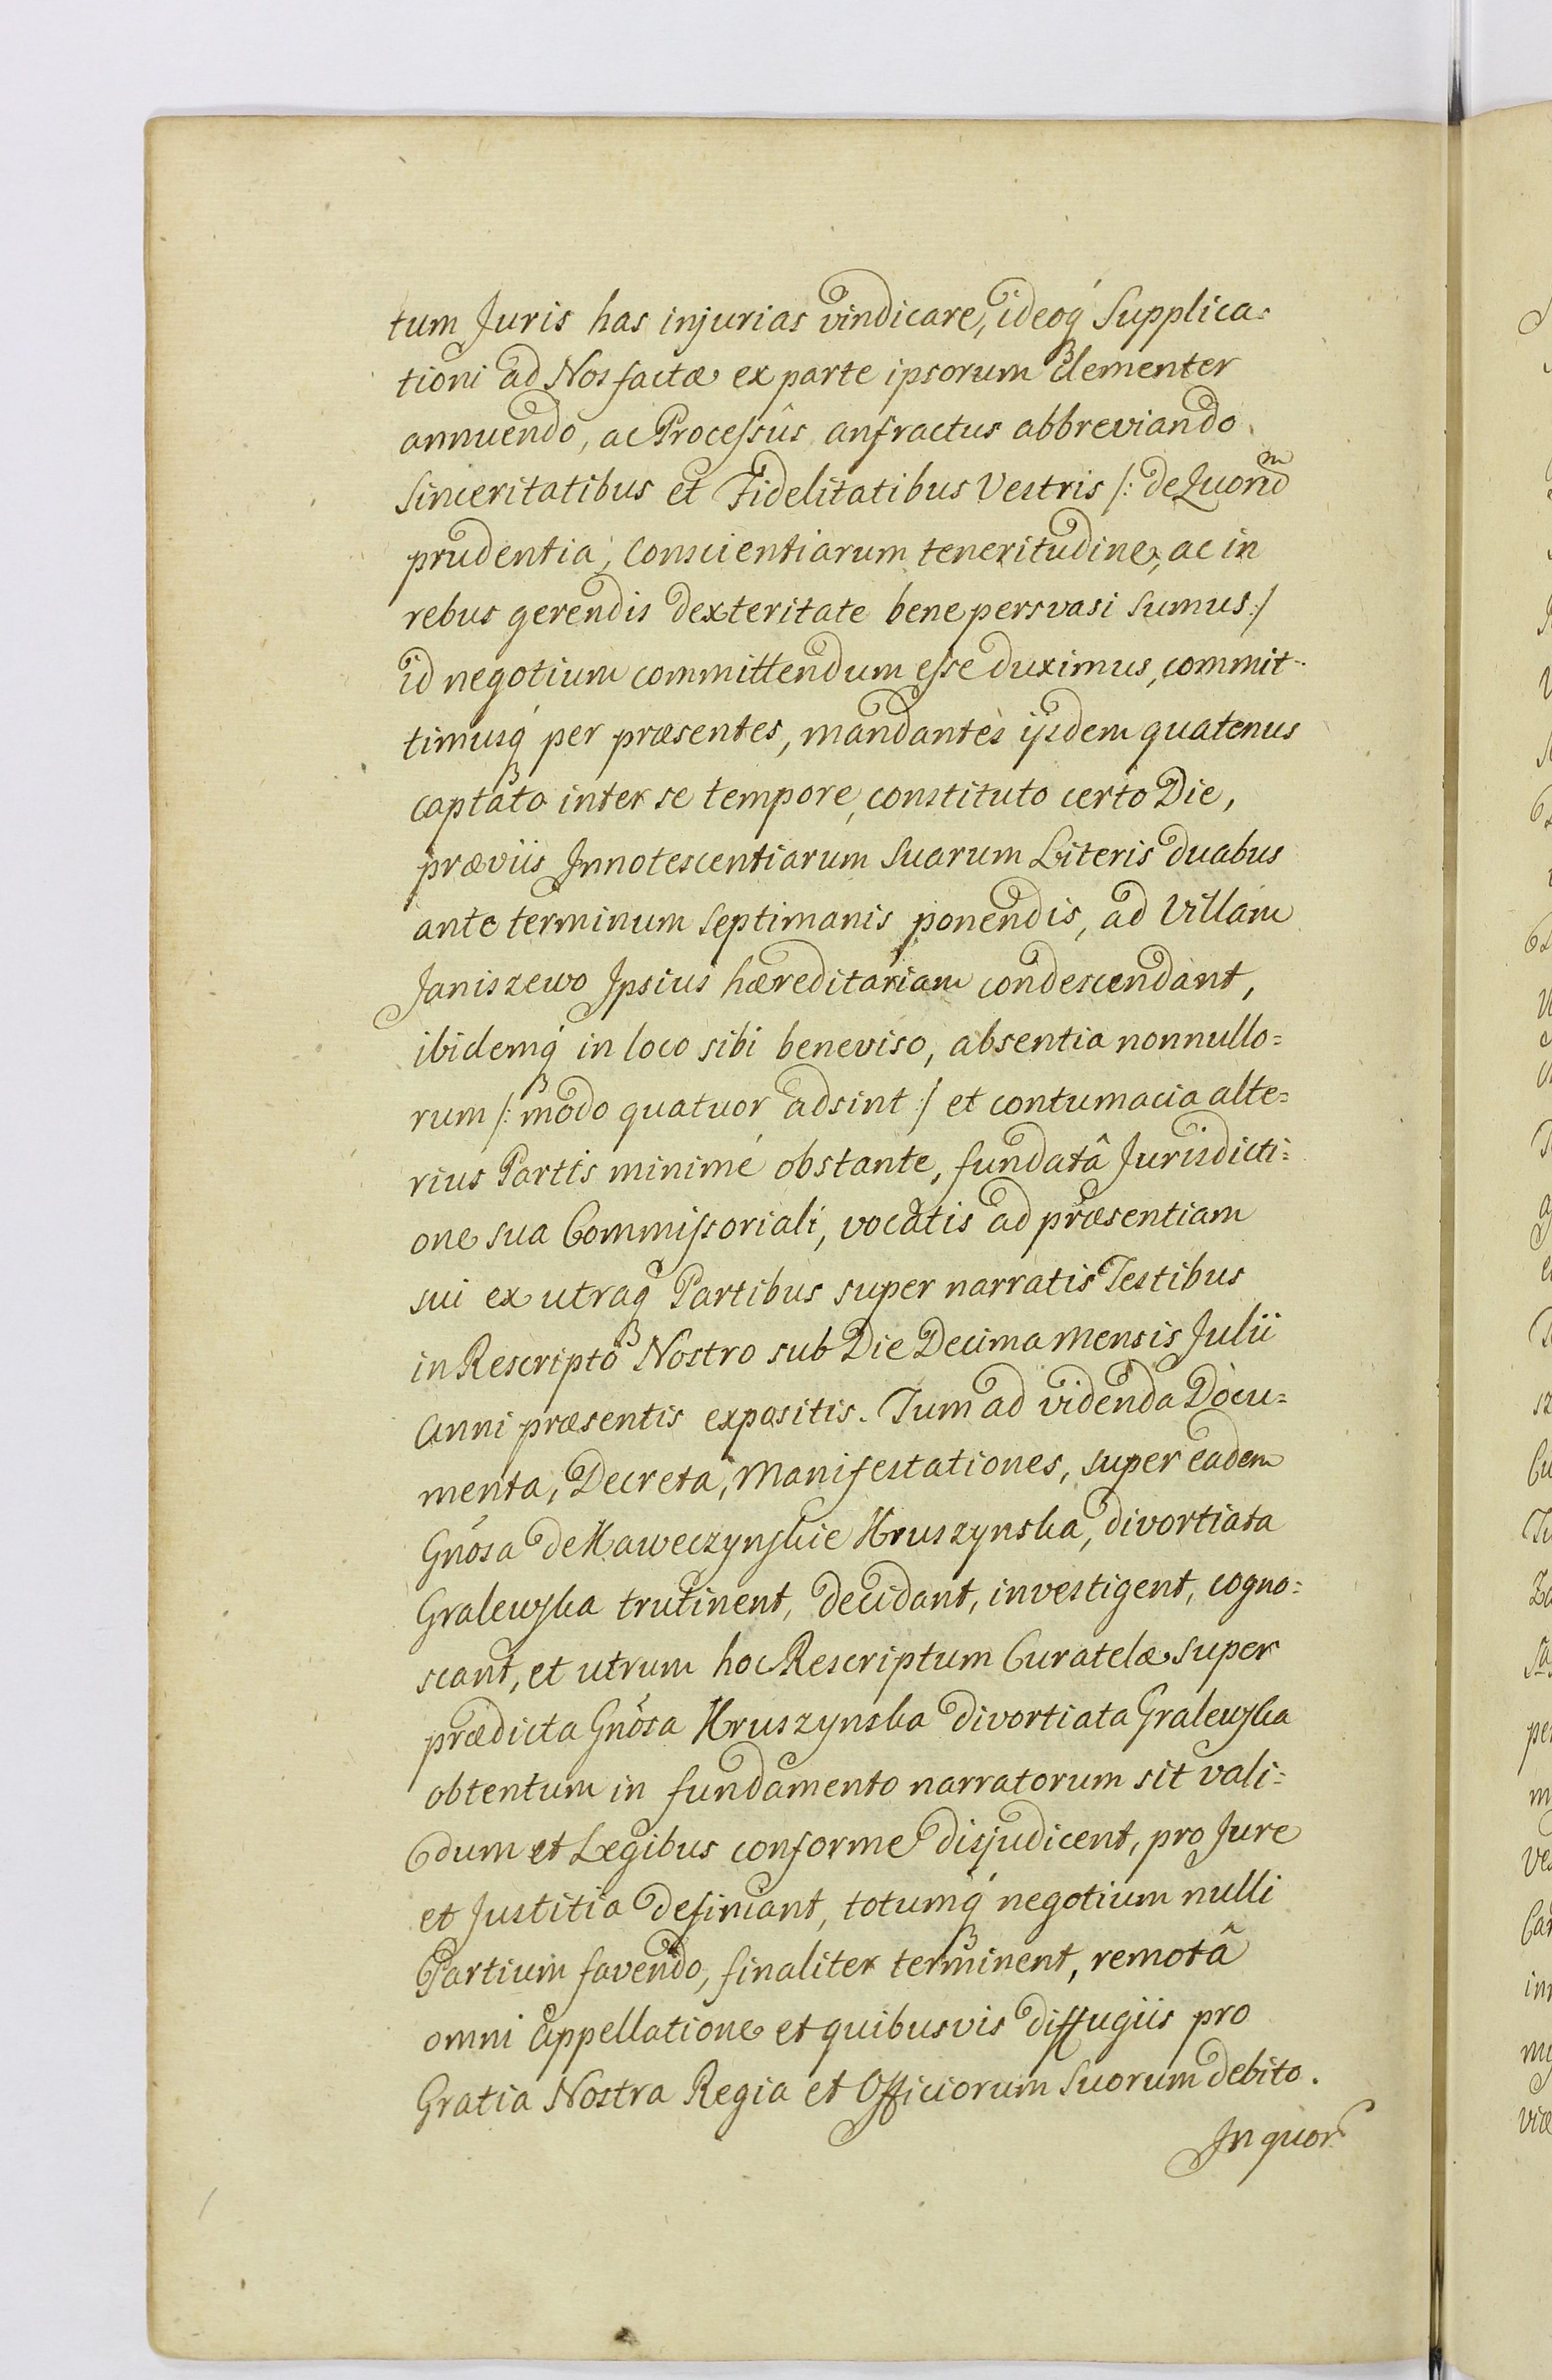 tum Juris has injurias vindicare, ideoq́ Supplica=
tioni ad Nos factæ ex parte ipsorum clementer
annuendo, ac Processûs anfractus abbreviando
Sinceritatibus et Fidelitatibus Vestris /: de Quorũ
prudentia, Conscientiarum teneritudine, ac in
rebus gerendis dexteritate bene persvasi sumus :/
id negotium committendum esse duximus, commit=
timusq́ per præsentes, mandantes ijsdem quatenus
captato inter se tempore, constituto certo Die,
præviis Innotescentiarum Suarum Literis duabus
ante terminum Septimanis ponendis, ad Villam
Janiszewo Ipsius hæreditariam condescendant,
ibidemq́ in loco sibi beneviso, absentia nonnullo=
rum /: modo quatuor adsint :/ et contumacia alte=
rius Partis minimé obstante, fundatâ Jurisdicti=
one sua Commissoriali, vocatis ad præsentiam
sui ex utraq Partibus super narratis Testibus
in Rescripto Nostro sub Die Decima Mensis Julii
Anni præsentis expositis. Tum ad videnda Docu=
menta, Decreta, Manifestationes, super eadem
Gnosa de Kaweczynskie Kruszynska, divortiata
Gralewska trutinent, decidant, investigent, cogno=
scant, et utrum hoc Rescriptum Curatelæ super
prædicta Gnosa Kruszynska divortiata Gralewska
obtentum in fundamento narratorum sit vali=
dum et Legibus conforme disjudicent, pro Jure
et Justitia definiant, totumq́ negotium nulli
Partium favendo, finaliter terminent, remotâ
omni Appellatione et quibusvis diffugiis pro
Gratia Nostra Regia et Officiorum Suorum debito.
In quor